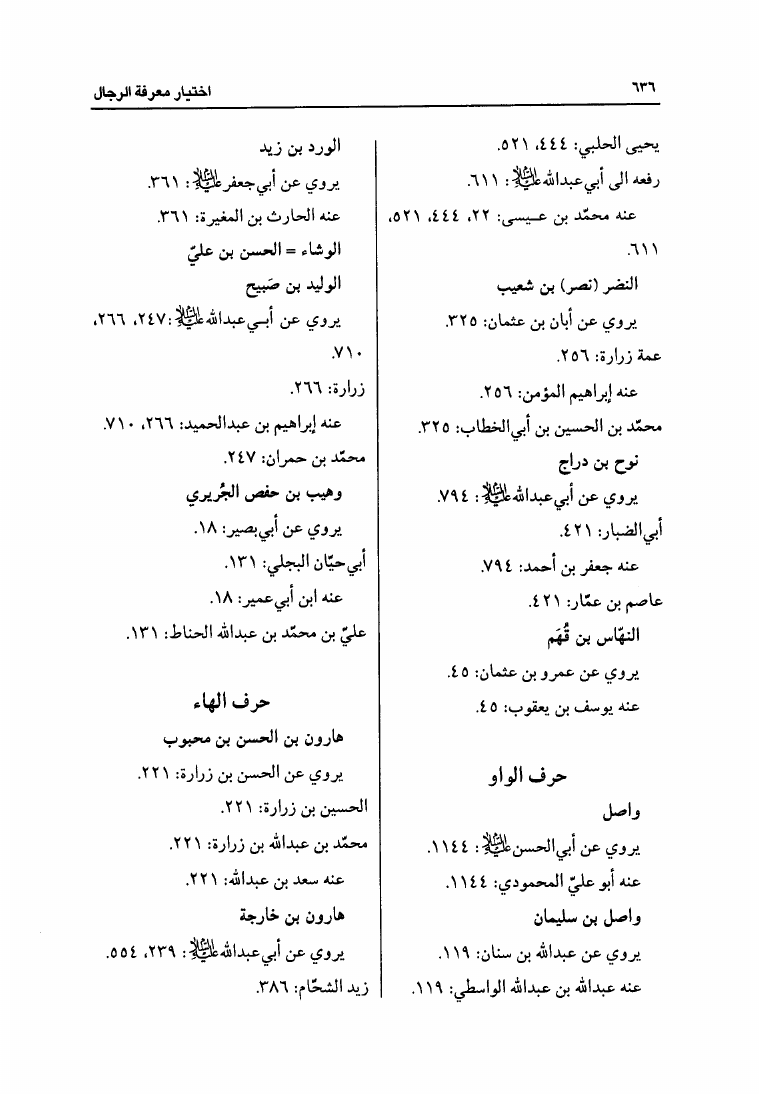 ٦٣٦
اختيار معرفة الرجال
يحيى الحلبي: ٤٤٤، ٥٢١.
رفعه الى أبي‌عبدالله عليه السلام: ٦١١.
عنه محمّد بن عـيسى: ٢٢، ٤٤٤، ٥٢١،
٦١١.
النضر (نصر) بن شعيب
يروي عن أبان بن عثمان: ٣٢٥.
عمة زرارة: ٢٥٦.
عنه إبراهيم المؤمن: ٢٥٦.
محمّد بن الحسين بن أبي‌الخطاب: ٣٢٥.
نوح بن دراج
يروي عن أبي‌عبدالله عليه السلام: ٧٩٤.
أبي‌الضبار: ٤٢١.
عنه جعفر بن أحمد: ٧٩٤.
عاصم بن عمّار: ٤٢١.
النهّاس بن قُهَم
يروي عن عمرو بن عثمان: ٤٥.
عنه يوسف بن يعقوب: ٤٥.
حرف الواو
واصل
يروي عن أبي‌الحسن عليه السلام: ١١٤٤.
عنه أبو عليّ المحمودي: ١١٤٤.
واصل بن سليمان
يروي عن عبدالله بن سنان: ١١٩.
عنه عبدالله بن عبدالله الواسطي: ١١٩.
الورد بن زيد
يروي عن أبي‌جعفر عليه السلام: ٣٦١.
عنه الحارث بن المغيرة: ٣٦١.
الوشاء = الحسن بن عليّ
الوليد بن صَبيح
يروي عن أبـي‌عبدالله عليه السلام: ٢٤٧، ٢٦٦،
٧١٠.
زرارة: ٢٦٦.
عنه إبراهيم بن عبدالحميد: ٢٦٦، ٧١٠.
محمّد بن حمران: ٢٤٧.
وهيب بن حفص الجُريري
يروي عن أبي‌بصير: ١٨.
أبي‌حيّان البجلي: ١٣١.
عنه ابن أبي‌عمير: ١٨.
عليّ بن محمّد بن عبدالله الحناط: ١٣١.
حرف الهاء
هارون بن الحسن بن محبوب
يروي عن الحسن بن زرارة: ٢٢١.
الحسين بن زرارة: ٢٢١.
محمّد بن عبدالله بن زرارة: ٢٢١.
عنه سعد بن عبدالله: ٢٢١.
هارون بن خارجة
يروي عن أبي‌عبدالله عليه السلام: ٢٣٩، ٥٥٤.
زيد الشحّام: ٣٨٦.